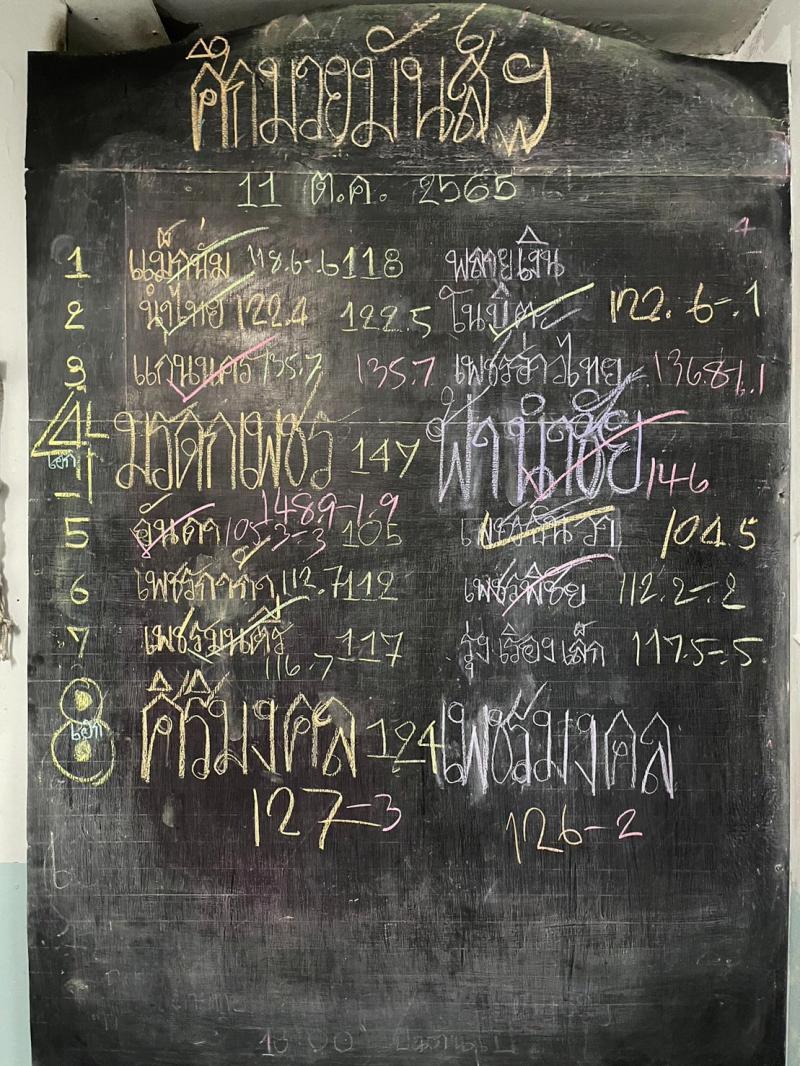 ศึกมวยมันส์ฯ
11 ต.ค. 2565
1 แม็กนั่ม 118.6-.6 118 พลายเงิน
2 นำไทย 122.4 122.5 โนบิตะ 122.6-.1
3 แกนนคร 135.7 135.7 เพชรอ่าวไทย 136.8-1.1
4 เอก มรดกเพชร 147 ฟ้านำชัย 146
148.9-1.9
5 อันดา 105.3-.3 105 104.5
6 112.7 112 เพชรพิชัย 112.2-.2
7 เพชรมนตรี 117 รุ่งเรืองเล็ก 117.5-.5
116.7
8 เอก คีรีมงคล 124 เพชรมงคล
127-3 126-2